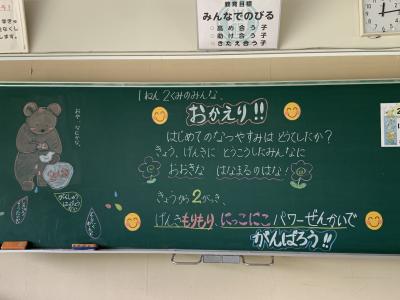 教育目標
みんなでのびる
高め合う子
助け合う子
きたえ合う子
1ねん2くみのみんな、
おかえり!!
はじめてのなつやすみはどうでしたか?
きょう、げんきにとうこうしたみんなに
おおきな はなまるのはな!
きょうから2がっき、
げんきもりもり、にっこにこパワーぜんかいで
がんばろう!!